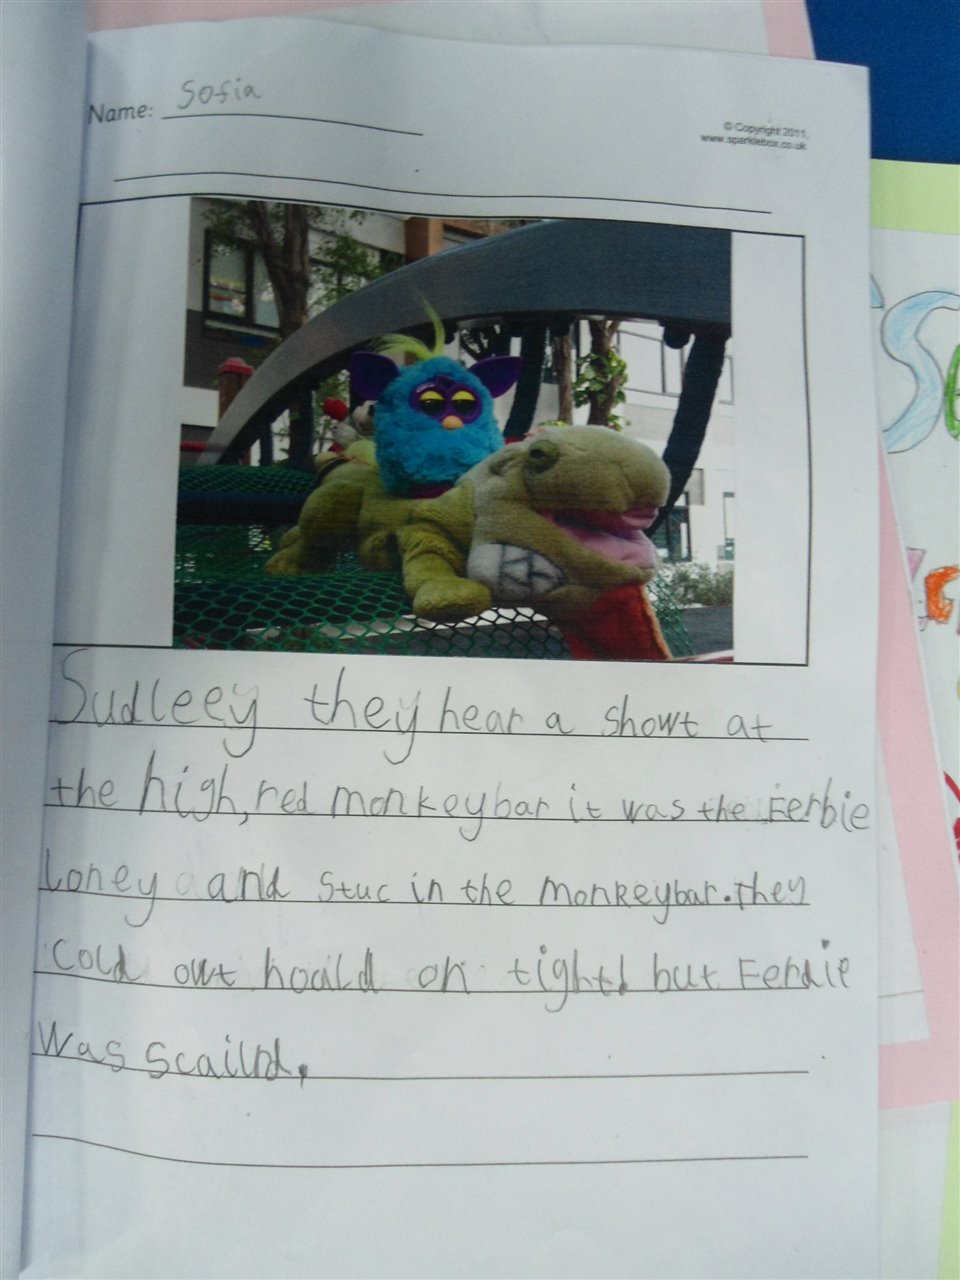 Name: Sofia
© Copyright 2011,
www.sparklebox.co.uk
Sudleey they hear a showt at
the high, red monkeybar it was the Ferbie
loney and stuc in the monkeybar. They
cold owt hoald on tight! but Ferdie
was